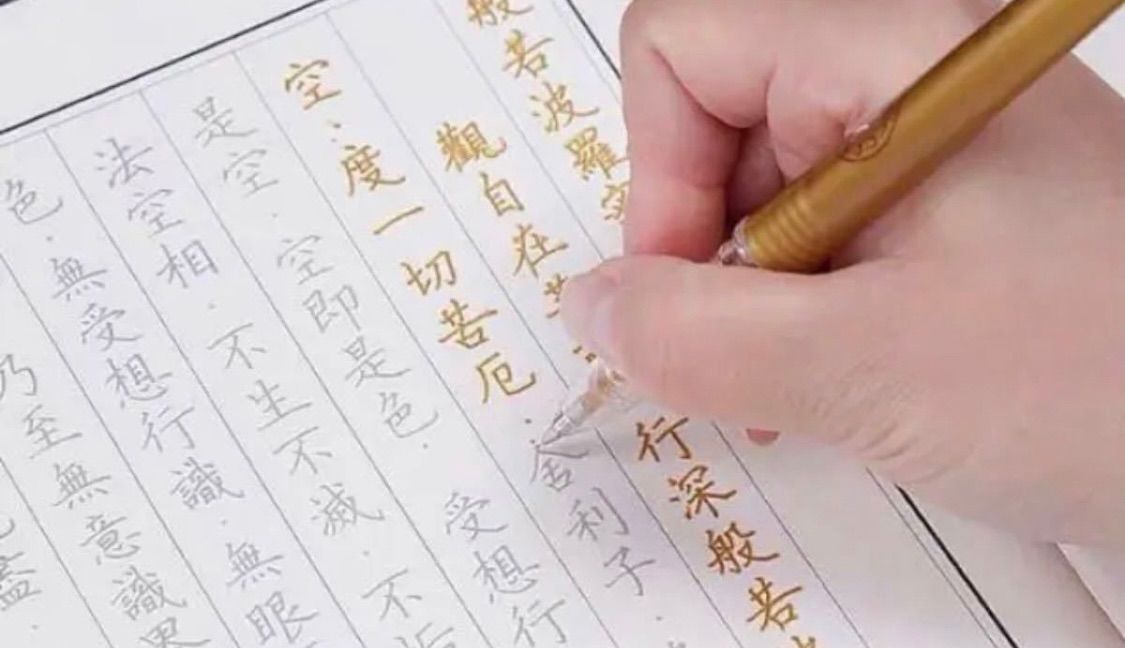 般若波羅
觀自在菩行深般若
空·度一切苦厄·舍利子·
是空·空即是色·受想行
法空相·不生不滅·不垢
色·無受想行識·無眼
乃至無意識界
盡·